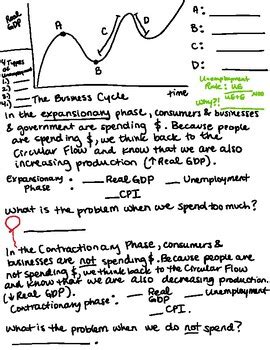 Real
GDP
A
B
C
D
time
A:
B:
C:
D:
4 Types
of
Unemployment
1
2
3
4
Unemployment
Rate: UE
UE+E
x100
Why?!
The Business Cycle
In the expansionary phase, consumers & businesses
& government are spending $. Because people
are spending $, we think back to the
Circular Flow and know that we are also
increasing production (↑Real GDP).
Expansionary
Phase :
Real GDP
Unemployment
CPI
What is the problem when we spend too much?
In the Contractionary Phase, consumers &
businesses are not spending $. Because people are
not spending $, we think back to the Circular Flow
and know that we are also decreasing production.
(↓Real GDP).
Contractionary phase:
Real
GDP
Unemployment
CPI
What is the problem when we do not spend?